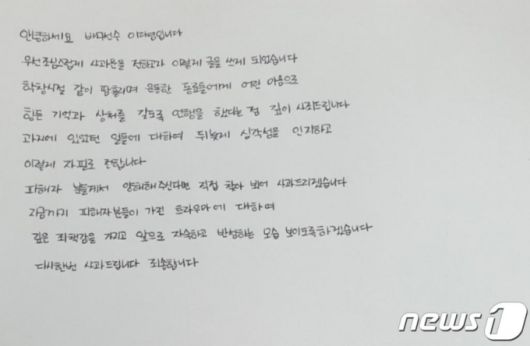 안녕하세요 배구선수 이다영입니다
우선 조심스럽게 사과문을 전하고자 이렇게 글을 쓰게 되었습니다
학창시절 같이 땀 흘리며 운동한 동료들에게 어린 마음으로
힘든 기억과 상처를 갖도록 언행을 했다는 점 깊이 사죄드립니다
과거에 있었던 일들에 대하여 뒤늦게 심각성을 인지하고
이렇게 자필로 전합니다
피해자 분들께서 양해해주신다면 직접 찾아 뵈어 사과드리겠습니다
지금까지 피해자분들이 가진 트라우마에 대하여
깊은 죄책감을 가지고 앞으로 자숙하고 반성하는 모습 보이도록하겠습니다
다시한번 사과드립니다 죄송합니다
news1